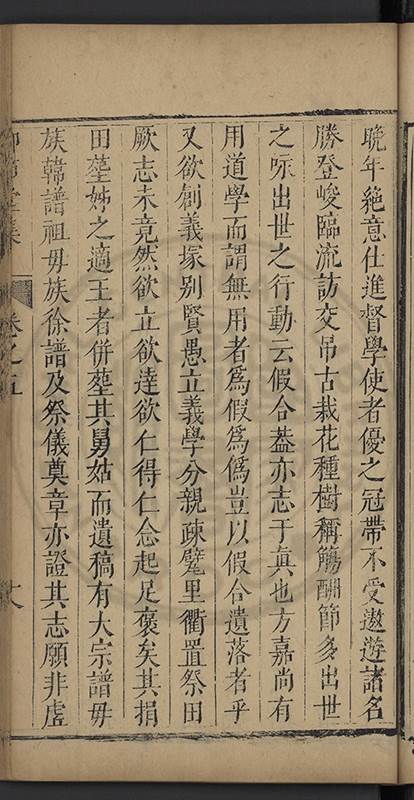 晚年絶意仕進督學使者優之冠帶不受遨遊諸名
勝登峻臨流訪交吊古栽花種樹稱觴酬節多出世
之咏出世之行動云假合葢亦志于眞也方嘉尚有
用道學而謂無用者爲假爲僞豈以假合遺落者乎
又欲創義塚别賢愚立義學分親疎甓里衢置祭田
厥志未竟然欲立欲達欲仁得仁念起足褒矣其捐
田塟姊之適王者併塟其舅姑而遺稿有大宗譜毋
族韓譜祖毋族徐譜及祭儀奠章亦證其志願非虛
集
卷之五